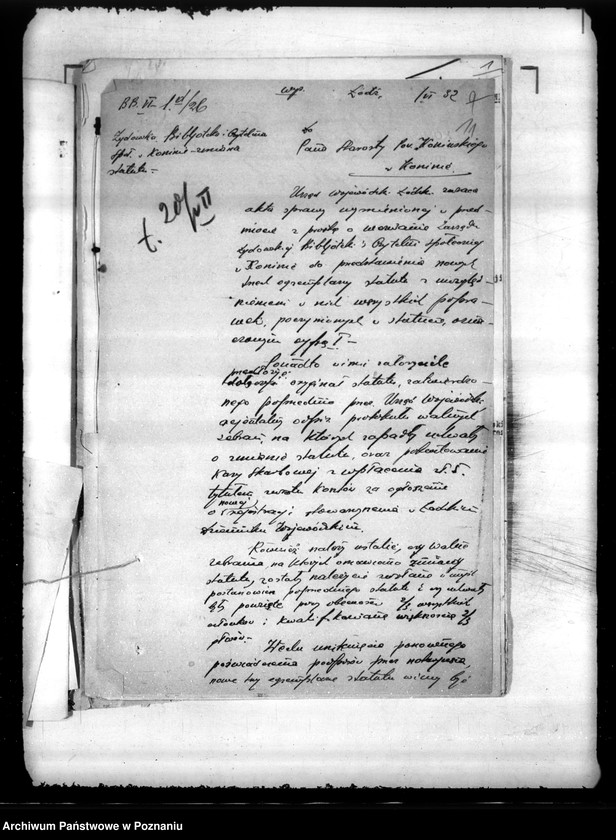 1
wyp. Łódź, /VI 32
BB. VI 1 /26
11
Żydowska Bibljoteka i Czytelnia
społ. w Koninie - zmiana
statutu. -
Do
Pana Starosty Pow. Konińskiego
w Koninie.
t. 20/VII
Urząd Wojewódzki Łódzki zwraca
akta sprawy wymienionej w przed-
miocie z prośbą o wezwanie Zarządu
Żydowskiej Bibljoteki i Czytelni Społecznej
w Koninie do przedstawienia nowych
egzemplarzy statutu z uwzględ-
nieniem w nich wszystkich popra-
wek, poczynionych w statucie, ozna-
czonym cyfrą I -
Ponadto winni założyciele
oryginał statutu, zatwierdzo-
nego poprzednio przez Urząd Wojewódzki,
odpis protokułu walnych
zebrań, na których zapadły uchwały
o zmianie statutu, oraz pokwitowanie
Kasy Skarbowej z wpłacenia
tytułem zwrotu kosztów za ogłoszenie
o nowej rejestracji stowarzyszenia w Łódzkim
Dzienniku Wojewódzkim.
Również należy ustalić, czy walne
zebrania, na których omawiano zmiany
statutu, zostały należycie zwołane w myśl
postanowień poprzedniego statutu i czy uchwały
były powzięte przy obecności 2/3 wszystkich
członków i kwalifikowaną większością 2/3
głosów. -
Celem uniknięcia ponownego
poświadczenia podpisów przez notarjusza,
nowe trzy egzemplarze statutu winny być
Archiwum Państwowe w Poznaniu